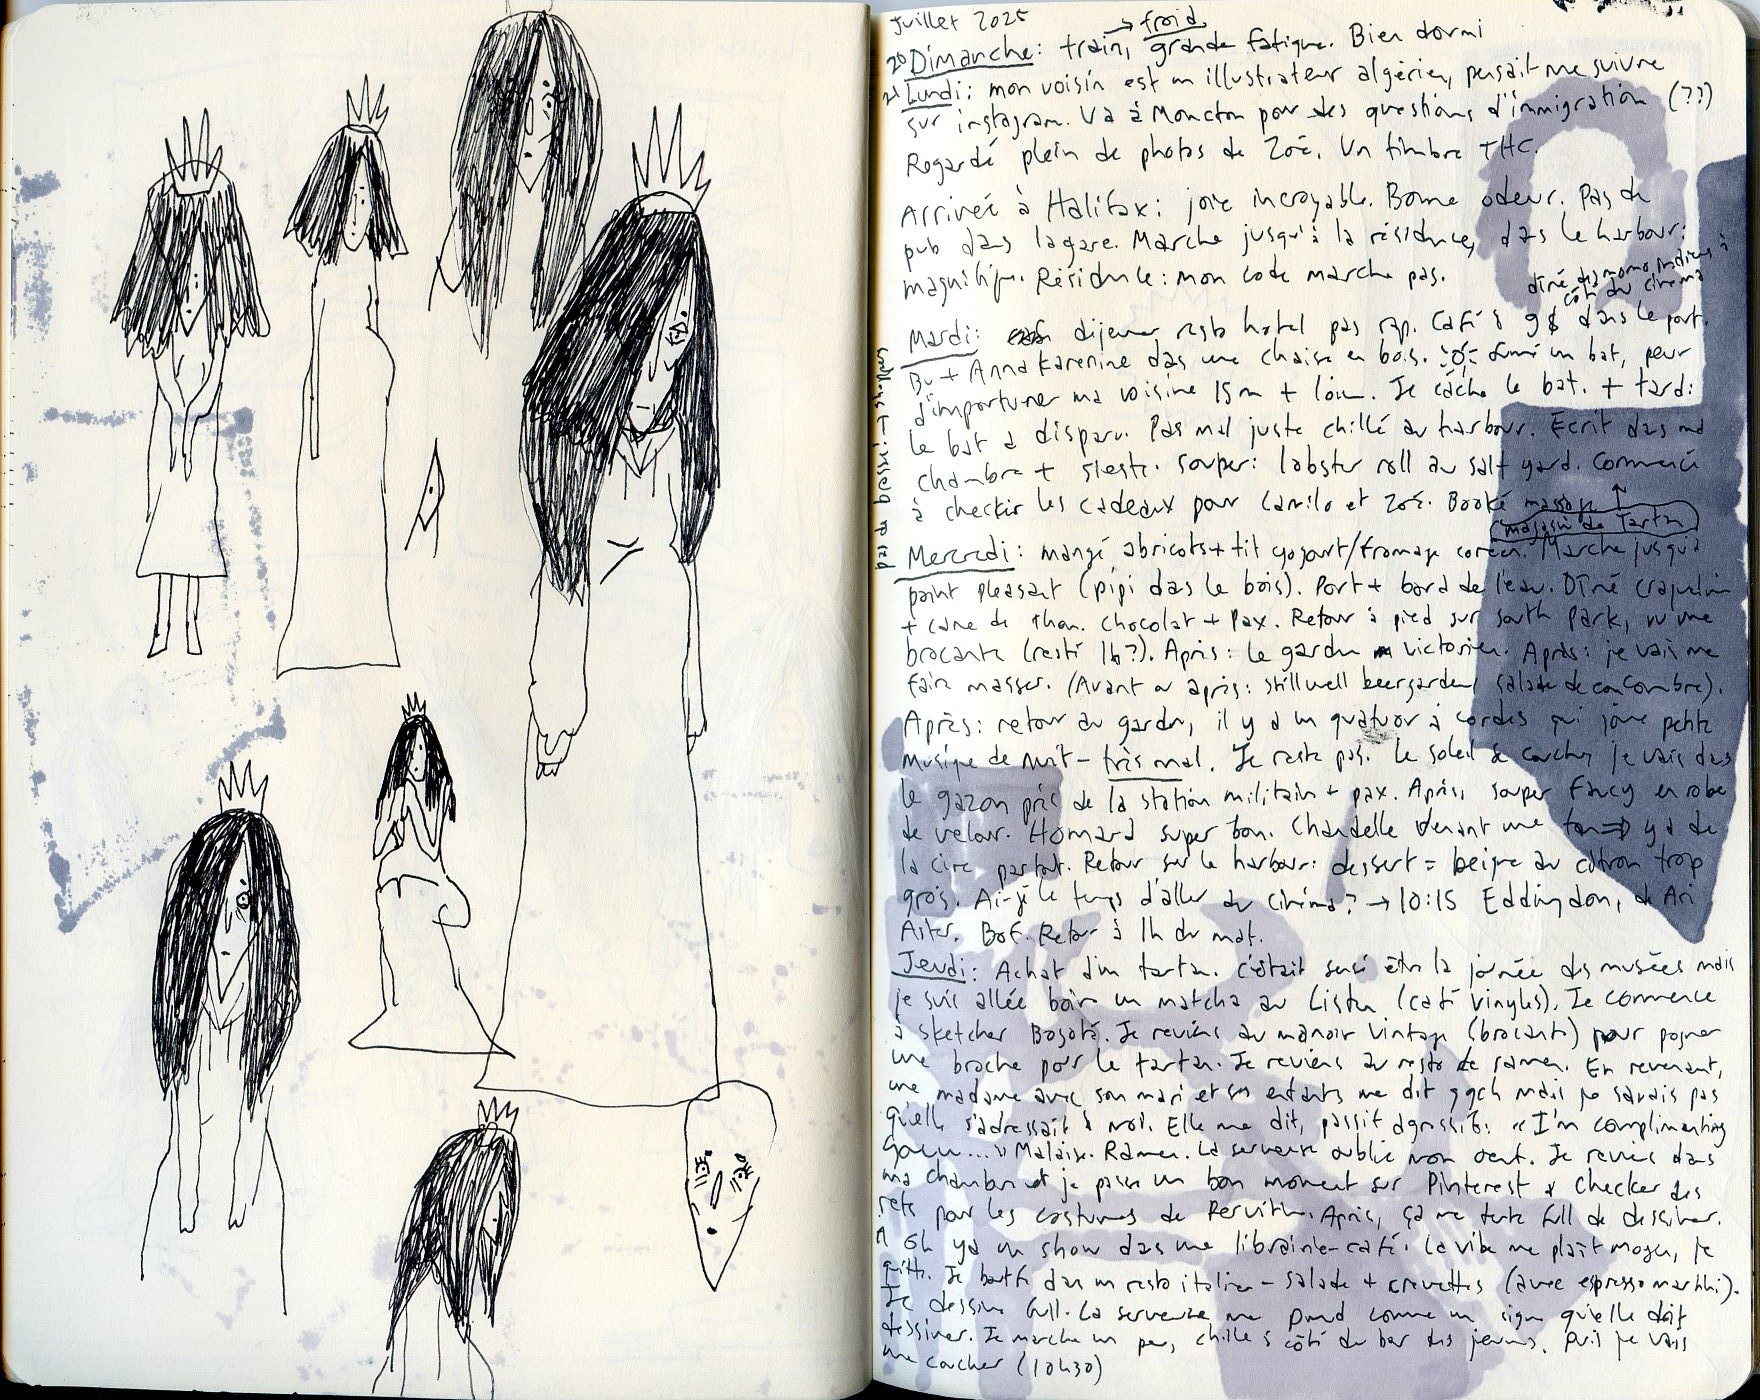 Juillet 2025
→ froid
20 Dimanche: train, grande fatigue. Bien dormi
21 Lundi: mon voisin est un illustrateur algérien, pensait me suivre
sur instagram. Va à Moncton pour des questions d'immigration (??)
Regardé plein de photos de Zoé. Un timbre THC.
Arrivée à Halifax: joie incroyable. Bonne odeur. Pas de
pub dans la gare. Marche jusqu'à la résidence, dans le harbour:
magnifique. Résidence: mon code marche pas.
dîné des momo indiens à
côté du cinéma
Mardi: déjeuner resto hotel pas rap. Café à 9$ dans le port.
Bu + Anna Karenine dans une chaise en bois. fumé un bat, peur
d'importuner ma voisine 15m + loin. Je cache le bat. + tard:
le bat a disparu. Pas mal juste chillé au harbour. Ecrit dans ma
chambre + sieste. souper: lobster roll au salt yard. Commencé
à checker les cadeaux pour Camilo et Zoé. Booké massage
magasin de Tartan
Mercredi: mangé abricots + tit yogourt/fromage coréen. Marche jusqu'à
point pleasant (pipi dans le bois). Port + bord de l'eau. Dîné craquelin
+ cane de thon. Chocolat + pax. Retour à pied sur south Park, vu une
brocante (resté 1h?). Après: le garden victorien. Après: je vais me
faire masser. (Avant ou après: stillwell beergarden, salade de concombre).
Après: retour au garden, il y a un quatuor à cordes qui joue petite
musique de nuit – très mal. Je reste pas. Le soleil se couche, je vais dans
le gazon près de la station militaire + pax. Après, souper fancy en robe
de velour. Homard super bon. Chandelle devant une fan ⇒ y a de
la cire partout. Retour sur le harbour: dessert = beigne au citron trop
gros. Ai-je le temps d'aller au cinéma? → 10:15 Eddingdon, de Ari
Aster. Bof. Retour à 1h du mat.
Jeudi: Achat d'un tartan. C'était sensé être la journée des musées mais
je suis allée boire un matcha au Listen (café vinyles). Je commence
à sketcher Bogotá. Je reviens au manoir vintage (brocante) pour pogner
une broche pour le tartan. Je reviens au resto de ramen. En revenant,
une madame avec son mari et ses enfants me dit qqch mais je savais pas
qu'elle s'adressait à moi. Elle me dit, passif agressif: « I'm complimenting
you... » Malaise. Ramen. La serveuse oublie mon oeuf. Je reviens dans
ma chambre et je passe un bon moment sur Pinterest à checker des
refs pour les costumes de Après, ça me tente full de dessiner.
À 6h ya un show dans une librairie-café. La vibe me plaît moyen, je
quitte. Je bouffe dans un resto italien – salade + crevettes (avec espresso martini).
Je dessine full. La serveuse me prend comme un signe qu'elle doit
dessiner. Je marche un peu, chille à côté du bar des jeunes, puis je vais
me coucher (10h30)